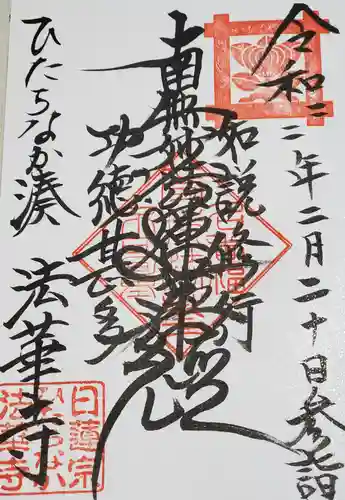 令和二二年二月二十日参詣
如説修行
南無妙法蓮華経
功徳甚多
ひたちなか湊
法華寺
日蓮宗
ひたちなか
法華寺